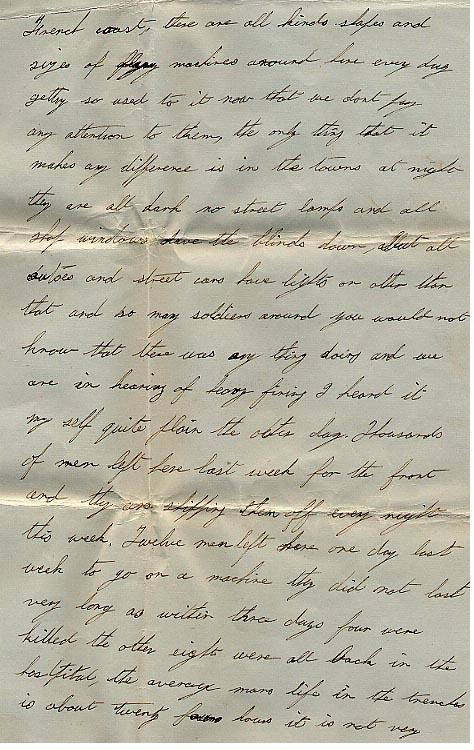 French coast, there are all kinds shapes and
sizes of machines around here every day
getting so used to it now that we dont pay
any attention to them, the only thing that it
makes any difference is in the towns at night
they are all dark no street lamps and all
shop windows have the blinds down, all
autoes and street cars have lights on other than
that and so many soldiers around you would not
know that there was any thing doing and we
are in hearing of heavy firing I heard it
my self quite plain the other day. Thousands
of men left here last week for the front
and they are shipping them off every night
this week. Twelve men left here one day last
week to go on a machine they did not last
very long as within three days four were
killed the other eight were all back in the
hospital, the average mans life in the trenches
is about twenty hours it is not very